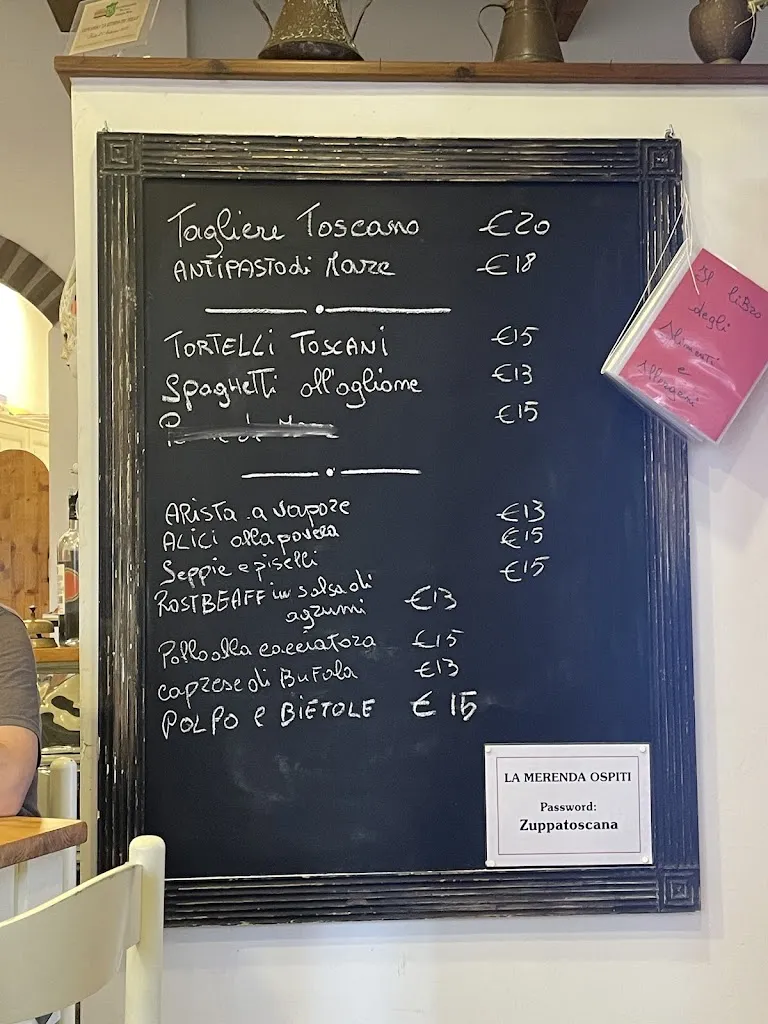 Tagliere Toscano €20
ANTIPASTO di Mare €18
TORTELLI TOSCANI €15
Spaghetti all'aglione €13
€15
ARISTA a vapore €13
ALICI alla povera €15
Seppie e piselli €15
ROSTBEAFF in salsa di
agrumi €13
Pollo alla cacciatora €15
caprese di Bufala €13
POLPO e BIETOLE € 15
Il libro
degli
Alimenti
e
Allergeni
LA MERENDA OSPITI
Password:
Zuppatoscana